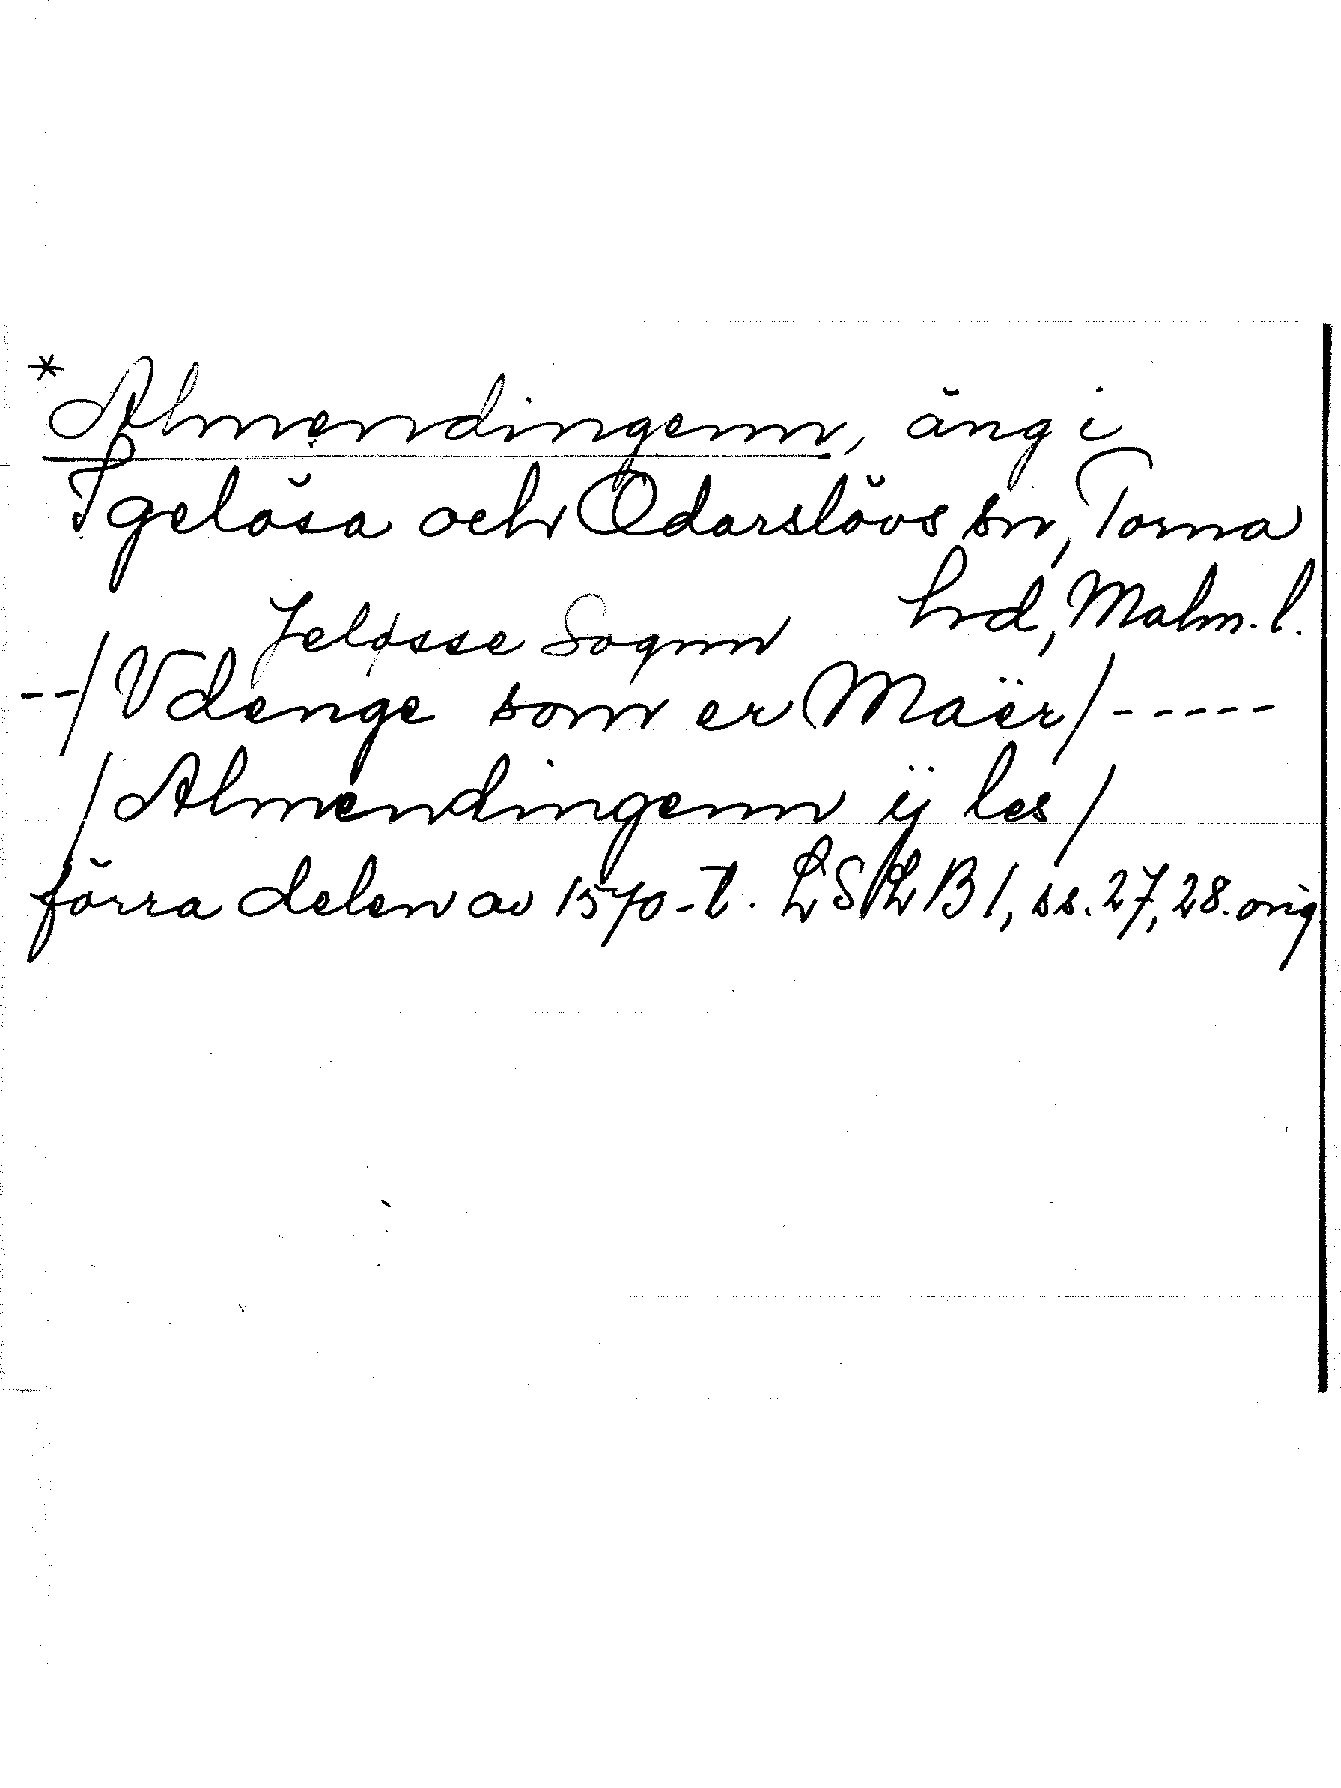 *Almendingenn, äng i
Igelösa och Odarslövs sn, Torna
hrd, Malm. l.
Jeløsse Sognn
--/Vdenge som er Maër/-----
/Almendingenn ij les/
förra delen av 1570-t. LSLB 1, ss. 27, 28. orig